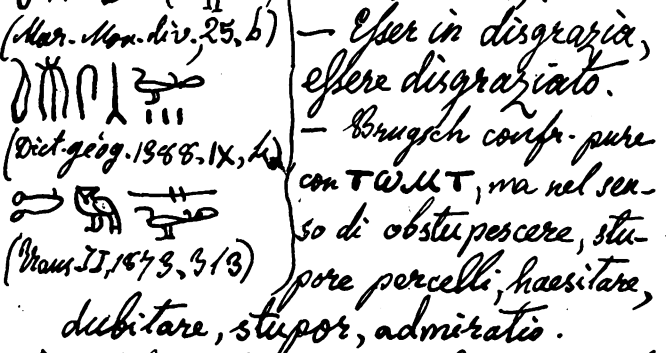 (Mar. Mon. div., 25, b)
(Dict. géog. 1388, IX,
(Trans II, 1873, 313)
— Esser in disgrazia,
essere disgraziato.
— Brugsch confr. pure
con ⲧⲱⲙⲧ, ma nel sen-
so di obstupescere, stu-
pore percelli, haesitare,
dubitare, stupor, admiratio.